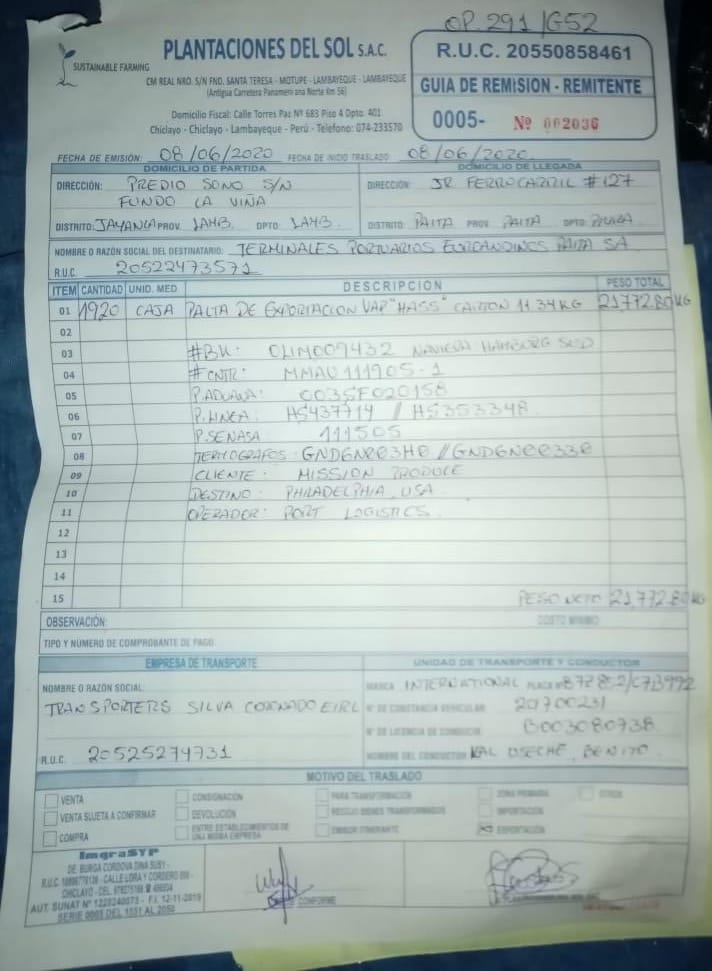 OP. 291/G52
SUSTAINABLE FARMING
PLANTACIONES DEL SOL S.A.C.
CM REAL NRO. S/N FND. SANTA TERESA - MOTUPE - LAMBAYEQUE - LAMBAYEQUE
(Antigua Carretera Panamericana Norte Km 56)
Domicilio Fiscal: Calle Torres Paz Nº 683 Piso 4 Dpto. 401
Chiclayo - Chiclayo - Lambayeque - Perú - Telefono: 074-233570
R.U.C. 20550858461
GUIA DE REMISION - REMITENTE
0005- Nº 002036
FECHA DE EMISIÓN: 08/06/2020 FECHA DE INICIO TRASLADO 08/06/2020
DOMICILIO DE PARTIDA
DIRECCIÓN: PREDIO SONO S/N
FUNDO LA VIÑA
DISTRITO: JAYANCA PROV. LAMB. DPTO: LAMB.
DOMICILIO DE LLEGADA
DIRECCIÓN: JR FERROCARRIL #127
DISTRITO: PAITA PROV. PAITA DPTO: PIURA
NOMBRE O RAZÓN SOCIAL DEL DESTINATARIO: TERMINALES PORTUARIOS EUROANDINOS PAITA SA
R.U.C. 20522473571
ITEM CANTIDAD UNID. MED. DESCRIPCION PESO TOTAL
01 1920 CAJA PALTA DE EXPORTACION VAR "HASS" CARTON 11.34KG 21772.80KG
02
03 #BK: CLIM009432 NAVIERA HAMBURG SUD
04 #CNTR: MMAU 111905-1
05 P.ADUANA: 0035F020158
06 P.LINEA: HS437714 // HS353348
07 P.SENASA: 111505
08 TERMOGRAFOS:
09 CLIENTE: MISSION PRODUCE
10 DESTINO: PHILADELPHIA, USA
11 OPERADOR: PORT LOGISTICS.
12
13
14
15 PESO NETO 21,772.80KG
OBSERVACIÓN: COSTO MINIMO
TIPO Y NÚMERO DE COMPROBANTE DE PAGO:
EMPRESA DE TRANSPORTE
NOMBRE O RAZÓN SOCIAL:
TRANSPORTERS SILVA CORONADO EIRL
R.U.C. 20525274731
UNIDAD DE TRANSPORTE Y CONDUCTOR
MARCA INTERNATIONAL PLACA Nº
Nº DE CONSTANCIA VEHICULAR
Nº DE LICENCIA DE CONDUCIR B003080738
NOMBRE DEL CONDUCTOR BENITO
MOTIVO DEL TRASLADO
VENTA CONSIGNACIÓN PARA TRANSFORMACIÓN ZONA PRIMARIA OTROS
VENTA SUJETA A CONFIRMAR DEVOLUCIÓN RECOJO BIENES TRANSFORMADOS IMPORTACIÓN
COMPRA ENTRE ESTABLECIMIENTOS DE UNA MISMA EMPRESA EMISOR ITINERANTE EXPORTACIÓN
ImgraSYP
DE: BURGA CORDOVA DINA SUSY
CHICLAYO
AUT. SUNAT Nº 1228240073 - F.I. 12-11-2019
SERIE 0005 DEL 1551 AL 2050
CONFORME